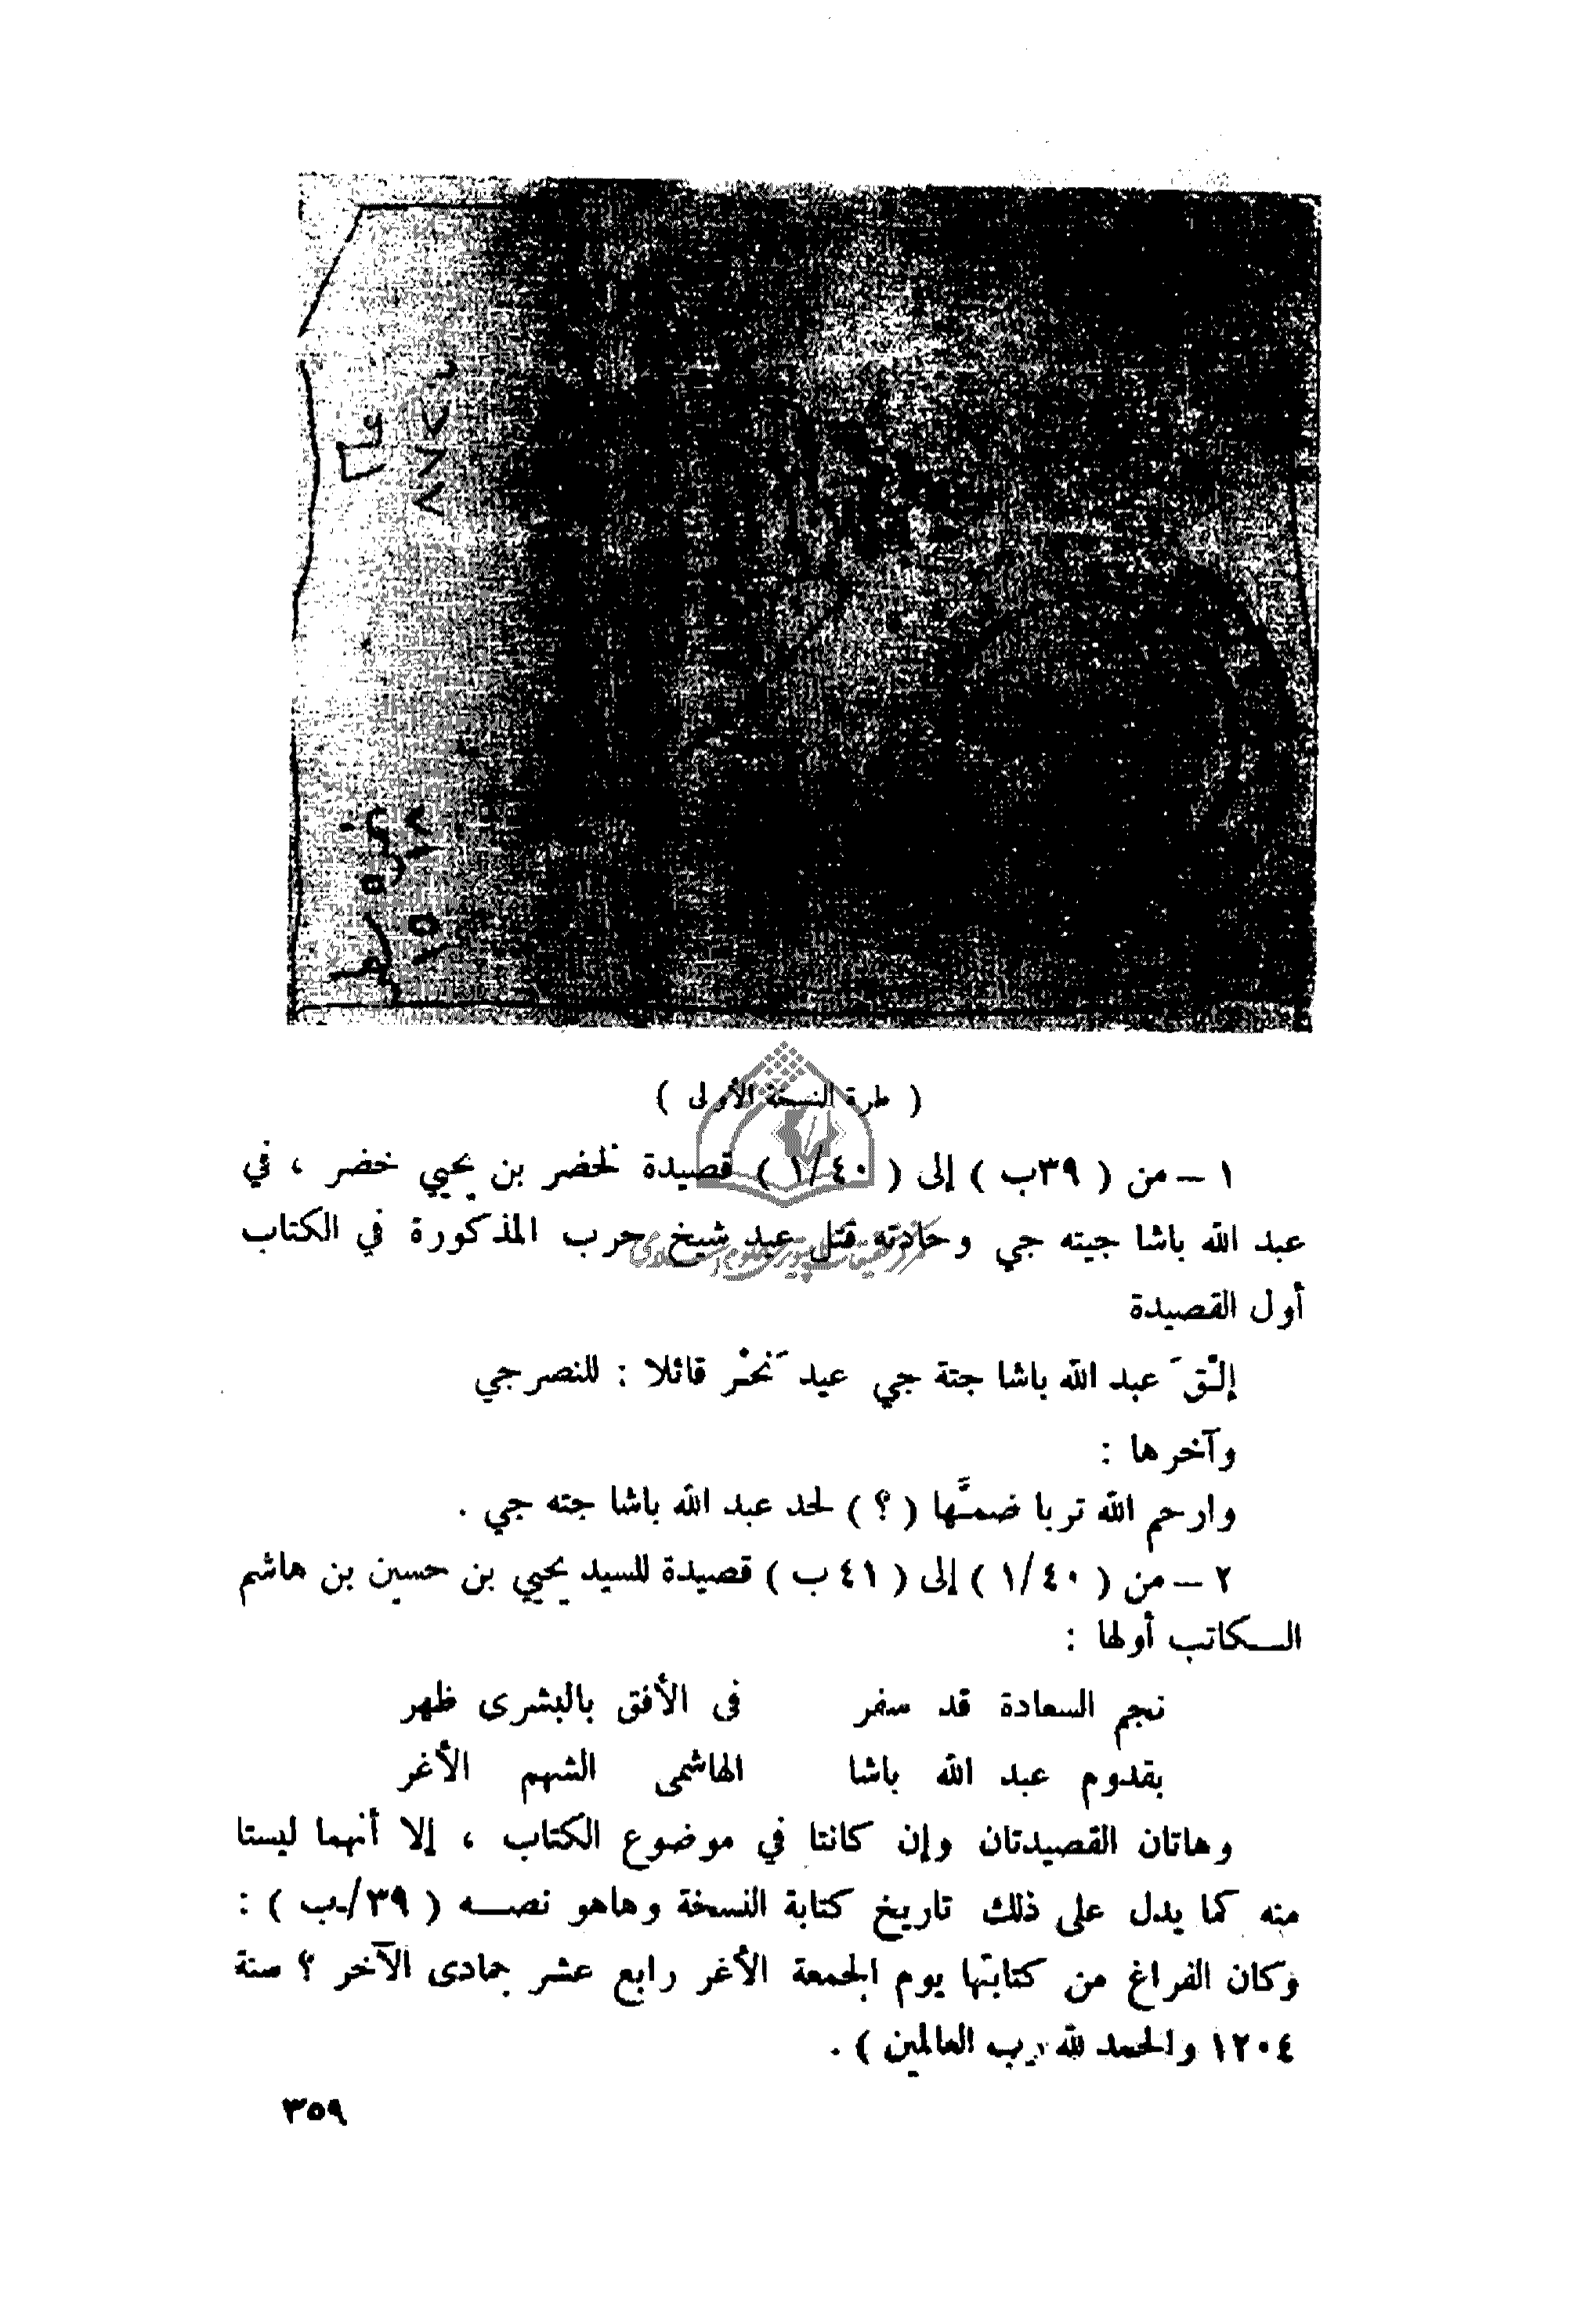 ( طرة النسخة الأولى )
١ – من ( ٣٩ب ) إلى ( ١/٤٠ ) قصيدة لخضر بن يحيي خضر ، في
عبد الله باشا جيته جي وحادثه قتل عبد شيخ حرب المذكورة في الكتاب
أول القصيدة
إلْقَ عبد الله باشا جتة جي عيد نَحْر قائلا : للنصر جي
وآخرها :
وارحم الله تربا ضمَّها ( ؟ ) لحد عبد الله باشا جته جي .
٢ – من ( ١/٤٠ ) إلى ( ٤١ ب ) قصيدة للسيد يحيي بن حسين بن هاشم
الـكاتب أولها :
نجم السعادة قد سفر فى الأفق بالبشرى ظهر
بقدوم عبد الله باشا الهاشمى الشهم الأغر
وهاتان القصيدتان وإن كانتا في موضوع الكتاب ، إلا أنهما ليستا
منه كما يدل على ذلك تاريخ كتابة النسخة وهاهو نصـه ( ٣٩/ـب ) :
وكان الفراغ من كتابتها يوم الجمعة الأغر رابع عشر جمادى الآخر ؟ سنة
١٢٠٤ والحمد لله رب العالمين ) .
٣٥٩